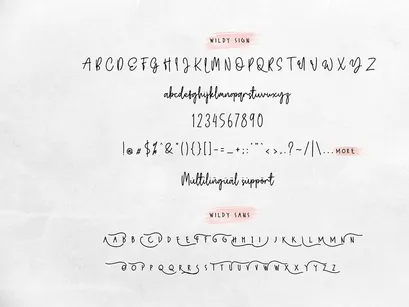 WILDY SIGN
ABCDEFGHIJKLMNOPQRSTUVWXYZ
abcdefghijklmnopqrstuvwxyz
1234567890
MORE
Multilingual support
WILDY SANS
AABBCCDDEEFFGGHHIIJJKKLLMMNN
OOPPQQRRSSTTUUVVWWXXYYZZ